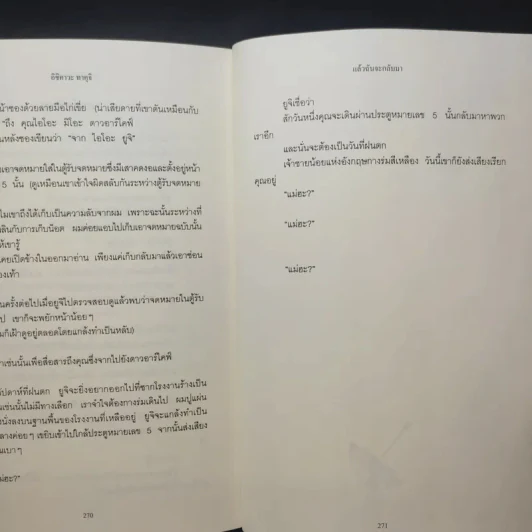 อิชิคาวะ ทาคุจิ
น้าซองด้วยลายมือไก่เขี่ย (น่าเสียดายที่เขาดันเหมือนกับ
"ถึง คุณไอโอะ มิโอะ ดาวอาร์ไคฟ์
หลังซองเขียนว่า "จาก ไอโอะ ยูจิ"
เอาจดหมายใส่ในตู้รับจดหมายซึ่งมีเสาคดงอและตั้งอยู่หน้า
5 นั้น (ดูเหมือนเขาเข้าใจผิดสลับกันระหว่างตู้รับจดหมาย
ไมเขาถึงได้เก็บเป็นความลับจากผม เพราะฉะนั้นระหว่างที่
สลินกับการเก็บน็อต ผมค่อยแอบไปเก็บเอาจดหมายฉบับนั้น
ให้เขารู้
คยเปิดข้างในออกมาอ่าน เพียงแค่เก็บกลับมาแล้วเอาซ่อน
องเท้า
นครั้งต่อไปเมื่อยูจิไปตรวจสอบดูแล้วพบว่าจดหมายในตู้รับ
ป เขาก็จะพยักหน้าน้อยๆ
มก็เฝ้าดูอยู่ตลอดโดยแกล้งทำเป็นหลับ)
าเช่นนั้นเพื่อสื่อสารถึงคุณซึ่งจากไปยังดาวอาร์ไคฟ์
ัปดาห์ที่ฝนตก ยูจิจะยิ่งอยากออกไปที่ซากโรงงานร้างเป็น
นเช่นนั้นไม่มีทางเลือก เราจำใจต้องกางร่มเดินไป ผมปูแผ่น
นั่งลงบนฐานพื้นของโรงงานที่เหลืออยู่ ยูจิจะแกล้งทำเป็น
ลางค่อยๆ เขยิบเข้าไปใกล้ประตูหมายเลข 5 จากนั้นส่งเสียง
นเบาๆ
ม่ฮะ?"
270
แล้วฉันจะกลับมา
ยูจิเชื่อว่า
สักวันหนึ่งคุณจะเดินผ่านประตูหมายเลข 5 นั้นกลับมาหาพวก
เราอีก
และนั่นจะต้องเป็นวันที่ฝนตก
เจ้าชายน้อยแห่งอังกฤษกางร่มสีเหลือง วันนี้เขาก็ยังส่งเสียงเรียก
คุณอยู่
"แม่ฮะ?"
"แม่ฮะ?"
"แม่ฮะ?"
271